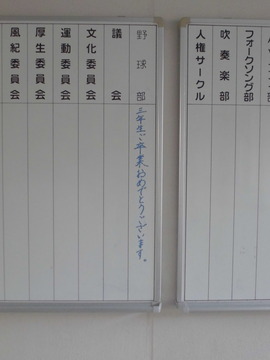 野球部 三年生ご卒業おめでとうございます。
議会
文化委員会
運動委員会
厚生委員会
風紀委員会
フォークソング部
吹奏楽部
人権サークル